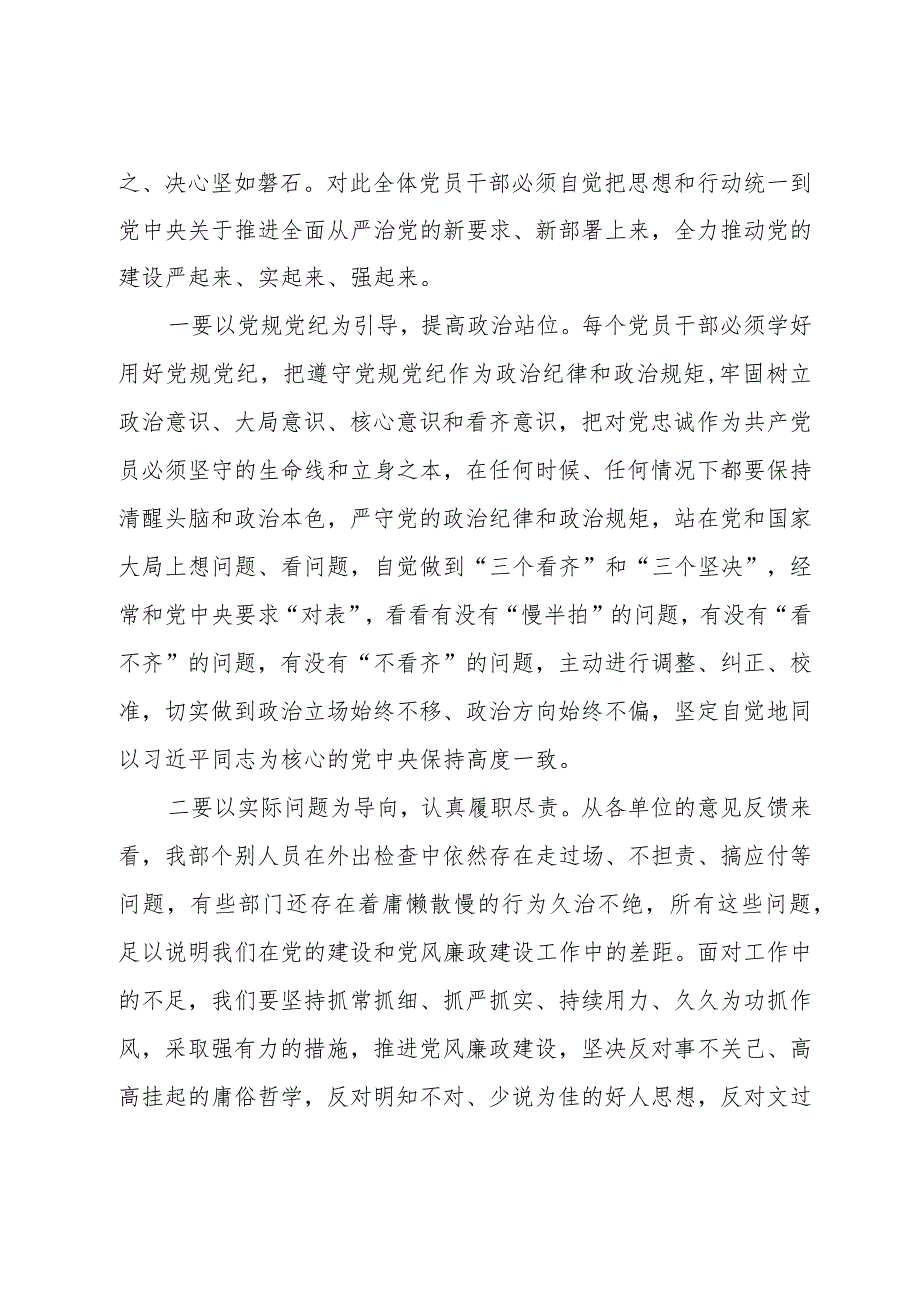 之、决心坚如磐石。对此全体党员干部必须自觉把思想和行动统一到
党中央关于推进全面从严治党的新要求、新部署上来，全力推动党的
建设严起来、实起来、强起来。
一要以党规党纪为引导，提高政治站位。每个党员干部必须学好
用好党规党纪，把遵守党规党纪作为政治纪律和政治规矩,牢固树立
政治意识、大局意识、核心意识和看齐意识，把对党忠诚作为共产党
员必须坚守的生命线和立身之本，在任何时候、任何情况下都要保持
清醒头脑和政治本色，严守党的政治纪律和政治规矩，站在党和国家
大局上想问题、看问题，自觉做到“三个看齐”和“三个坚决”，经
常和党中央要求“对表”，看看有没有“慢半拍”的问题，有没有“看
不齐”的问题，有没有“不看齐”的问题，主动进行调整、纠正、校
准，切实做到政治立场始终不移、政治方向始终不偏，坚定自觉地同
以习近平同志为核心的党中央保持高度一致。
二要以实际问题为导向，认真履职尽责。从各单位的意见反馈来
看，我部个别人员在外出检查中依然存在走过场、不担责、搞应付等
问题，有些部门还存在着庸懒散慢的行为久治不绝，所有这些问题，
足以说明我们在党的建设和党风廉政建设工作中的差距。面对工作中
的不足，我们要坚持抓常抓细、抓严抓实、持续用力、久久为功抓作
风，采取强有力的措施，推进党风廉政建设，坚决反对事不关己、高
高挂起的庸俗哲学，反对明知不对、少说为佳的好人思想，反对文过